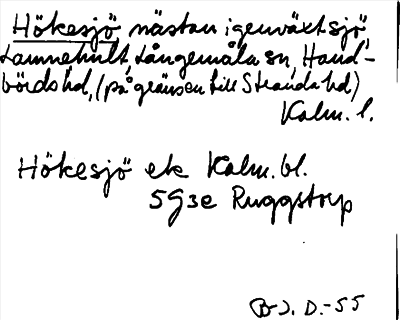 Hökesjö nästan igenväxt sjö,
Lamnehult, Långemåla sn, Hand-
börds hd, (på gränsen till Stranda hd)
Kalm. l.
Hökesjö ek Kalm. bl.
5G3e Ruggstorp
B J. D.-55